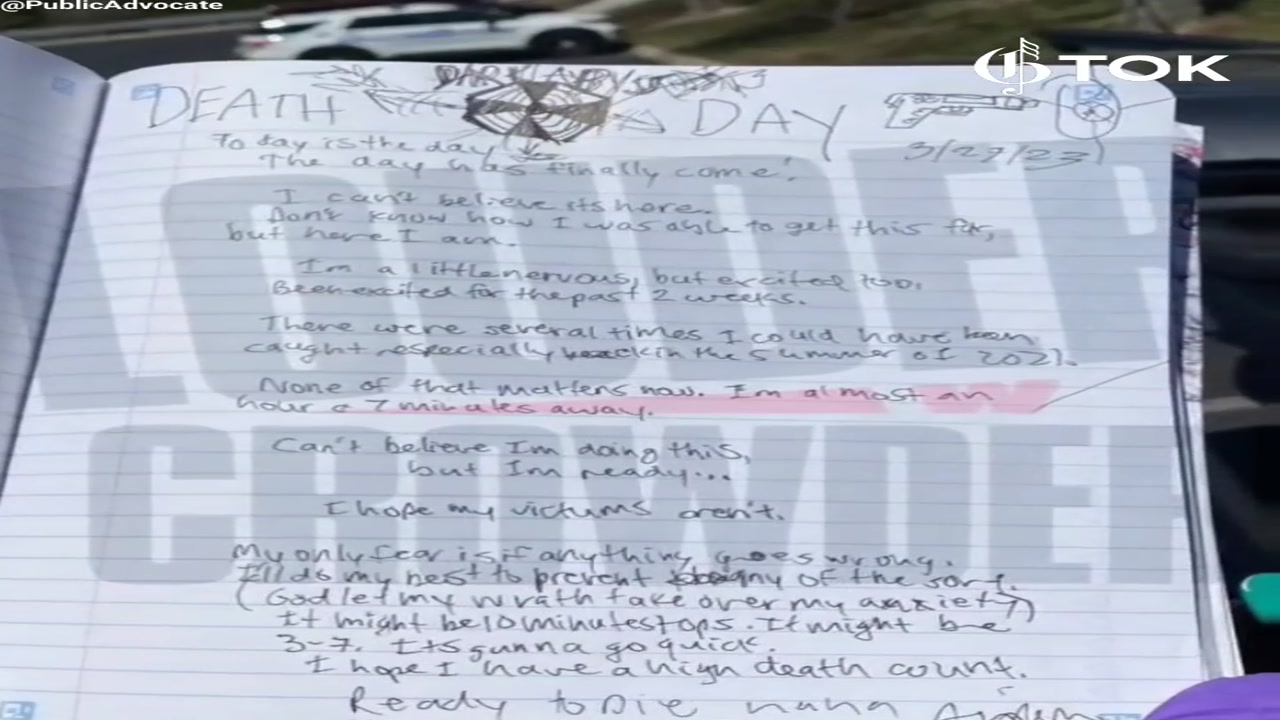 @PublicAdvocate
TOK
DARK ABBY
DEATH DAY
3/27/23
Today is the day
The day has finally come!
I can't believe its here.
Don't know how I was able to get this far,
but here I am.
I'm a little nervous, but excited too.
Been excited for the past 2 weeks.
There were several times I could have been
caught especially back in the summer of 2021.
None of that matters now. I'm almost an
hour & 7 minutes away.
Can't believe I'm doing this,
but I'm ready...
I hope my victums aren't.
My only fear is if anything goes wrong.
I'll do my best to prevent any of the sort.
(God let my wrath take over my anxiety)
It might be 10 minutes tops. It might be
3-7. Its gunna go quick.
I hope I have a high death count.
Ready to Die haha Aiden
LOUDER
CROWDER